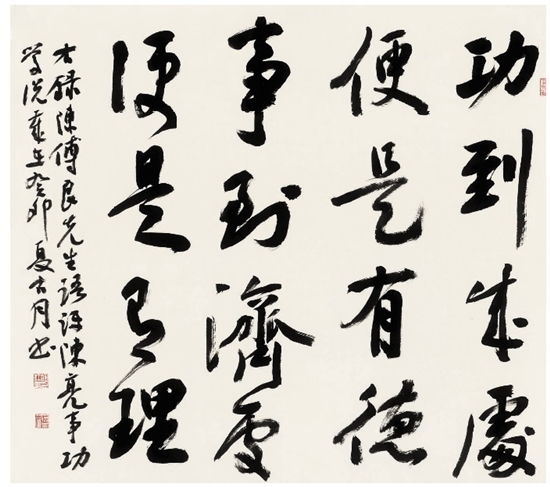 功到成處
便是有德
事到濟處
便是有理
右錄陳傅良先生語評陳亮事功
學說歲在癸卯夏月書